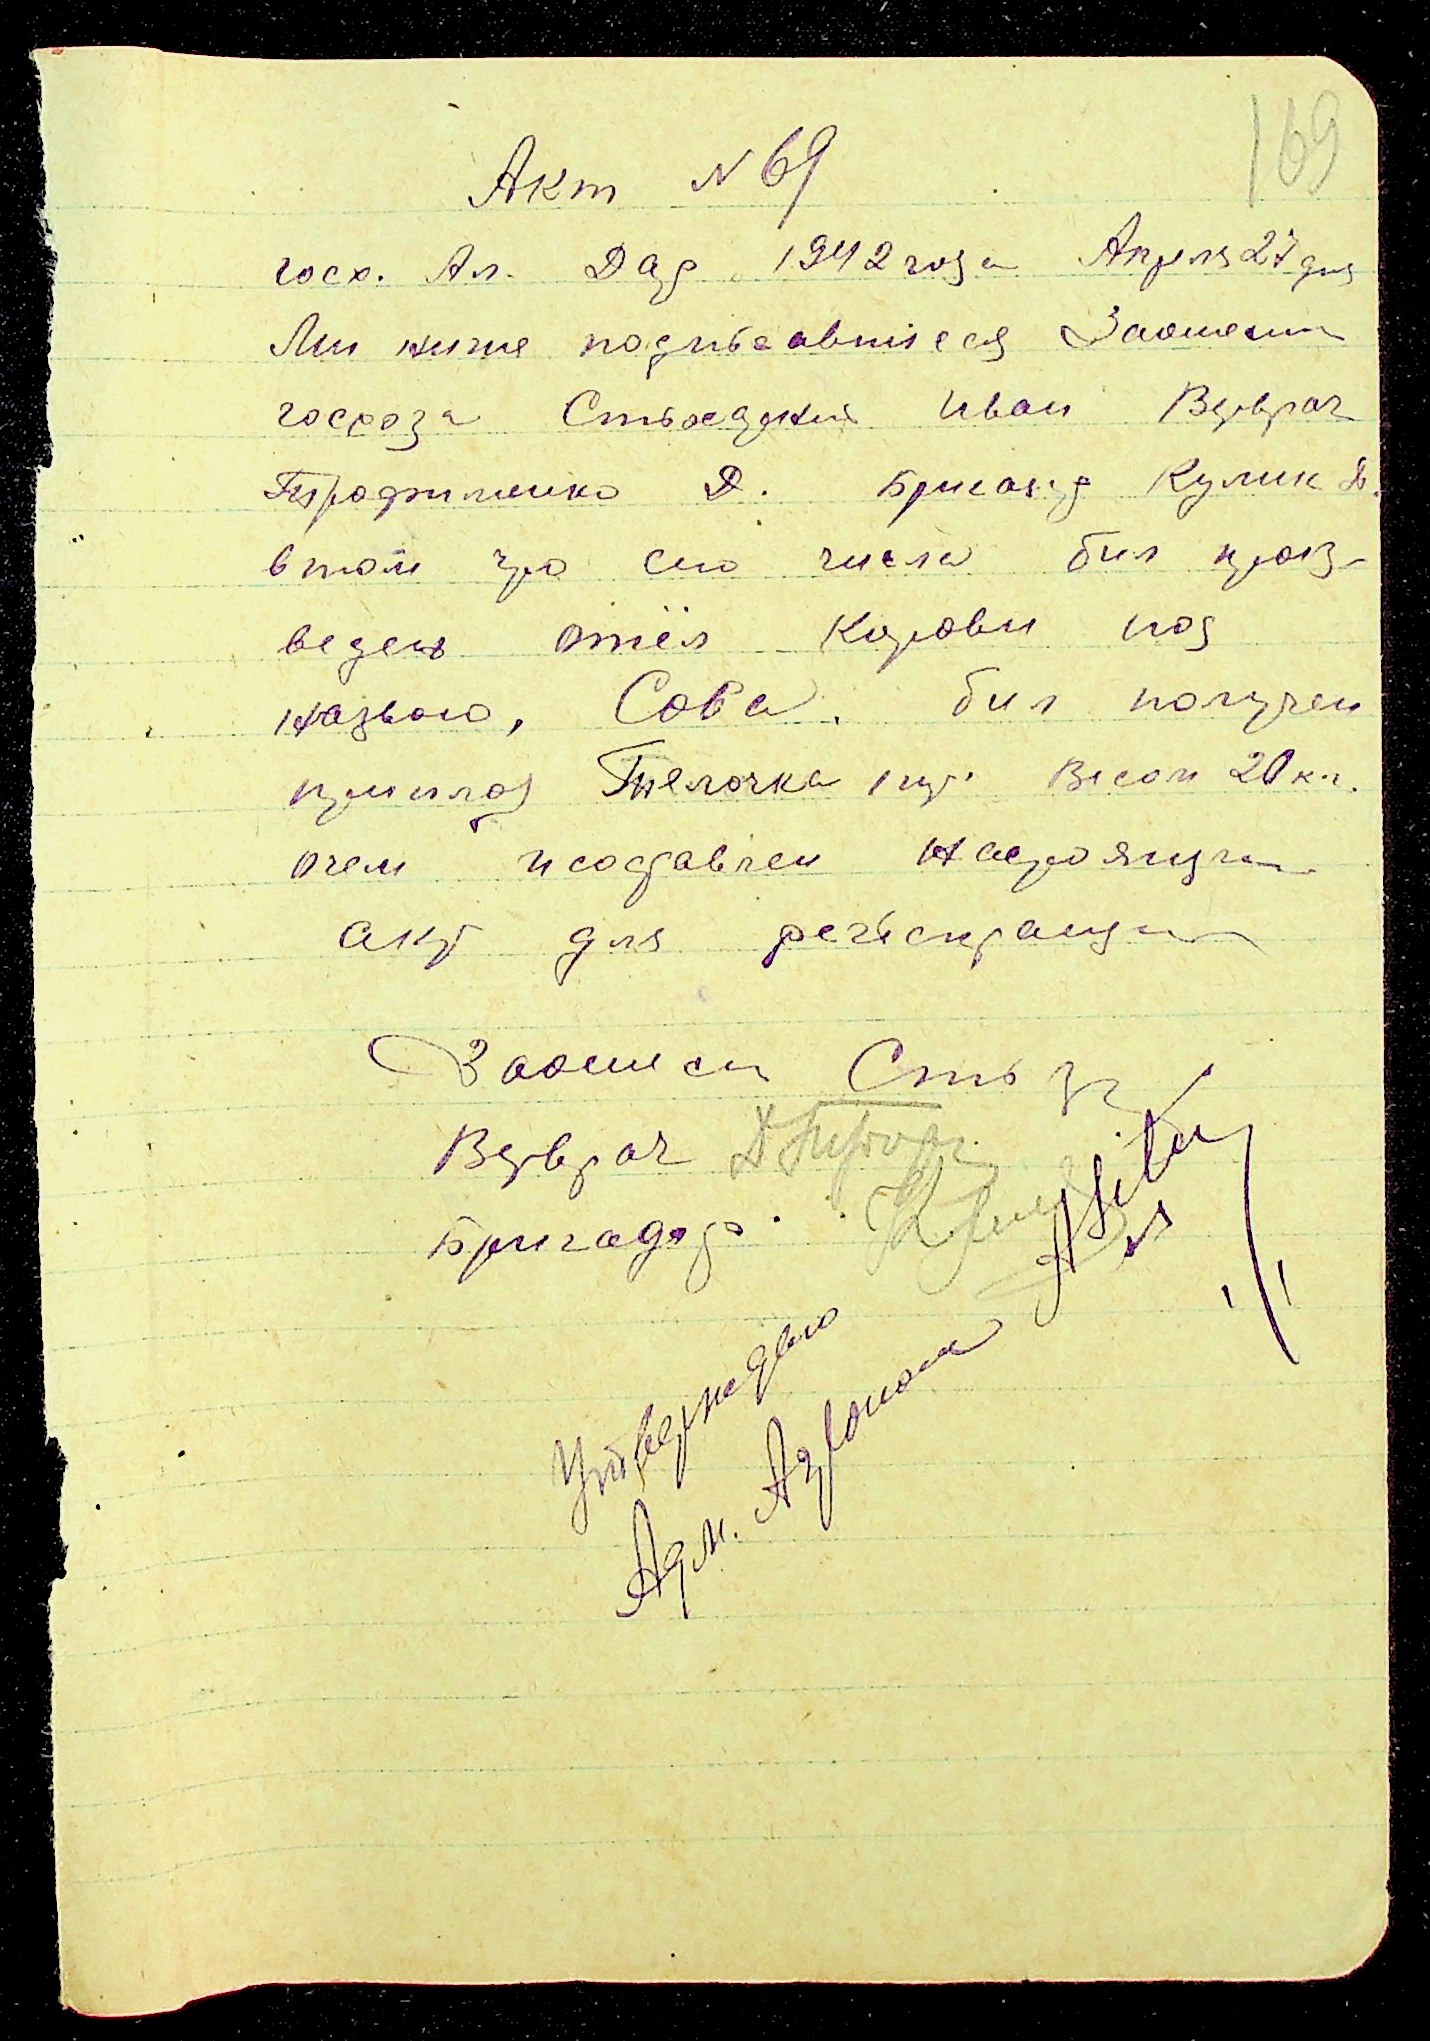 169
Акт N 69
госх. Ал. Дар 1942 года Апреля 27 дня
Ми ниже подпьсавшиеся Заотеги
госхоза Стьхадкий Иван Ветврач
Трофименко Д. Бригад Кулик
втом что сию числа бил произ-
веден отёл корови под
назвою, Сова. бил получен
приплод Тялочка 1 шт. Весом 20 кг.
очем и составлен настоящи
акт для регистрации
Ветврач
Бригадор.
Утверждаю
Адм. Агроном